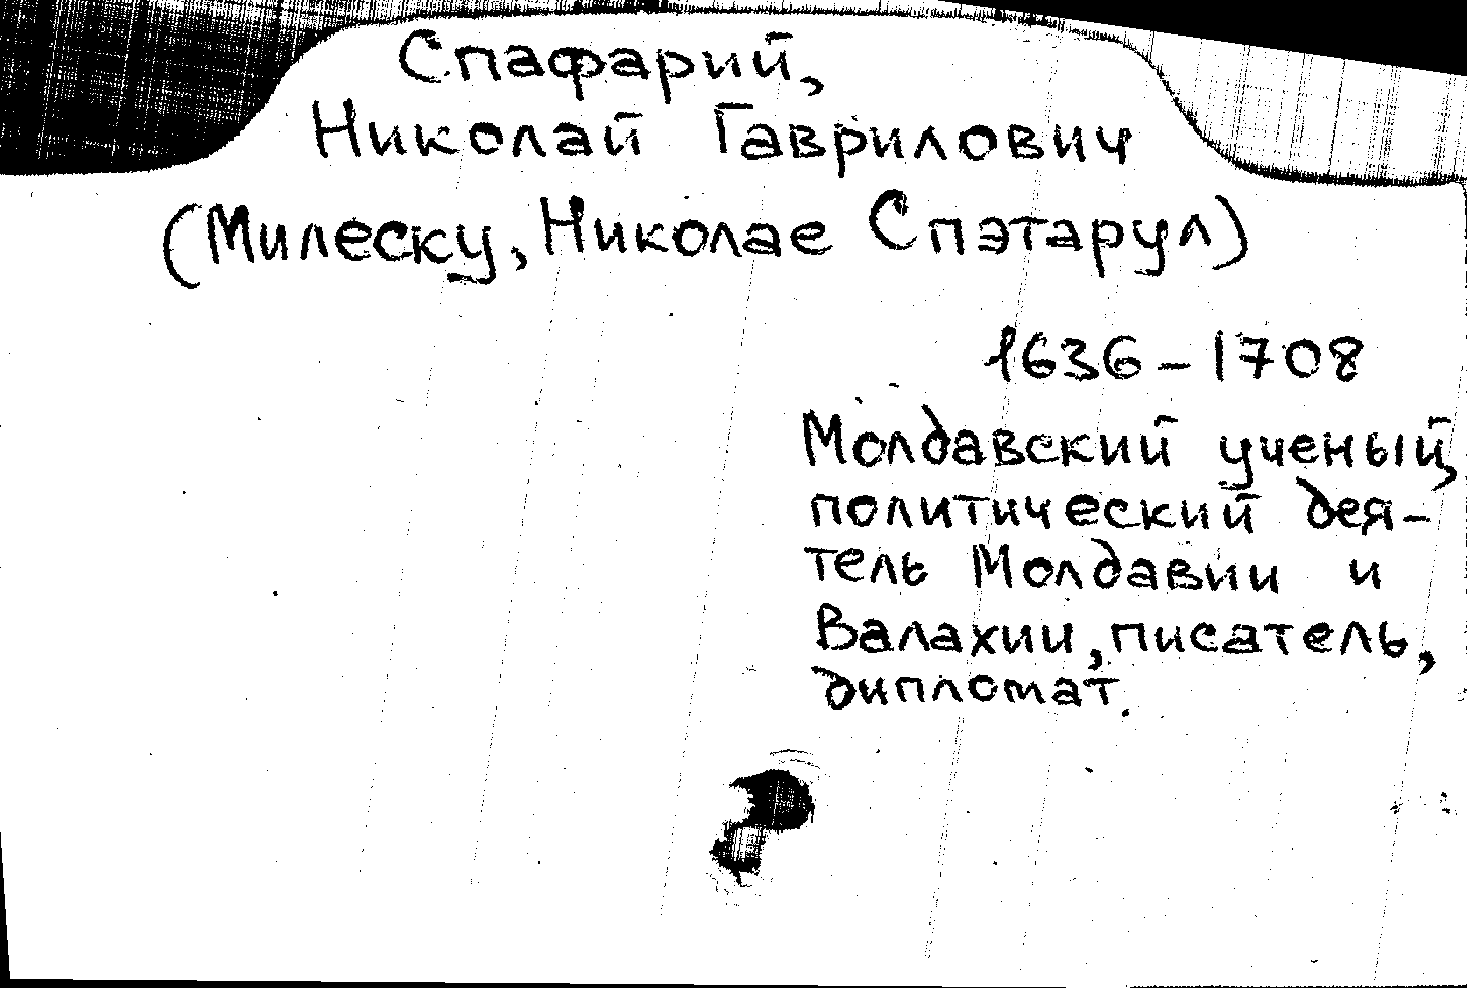 Спафарий,
Николай Гаврилович
(Милеску, Николае Спэтарул)
1636-1708
Молдавский ученый,
политический дея-
тель Молдавии и
Валахии, писатель,
дипломат.